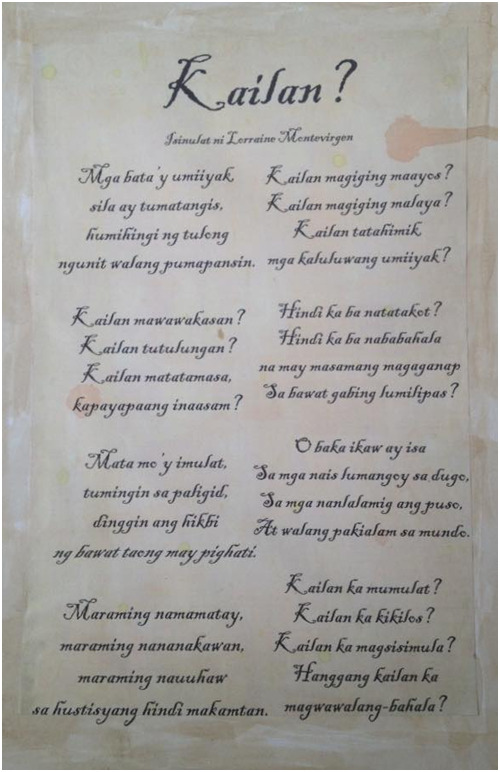 Kailan?
Isinulat ni Lorraine Montevirgen
Mga bata'y umiiyak
sila ay tumatangis,
humihingi ng tulong
ngunit walang pumapansin.
Kailan mawawakasan?
Kailan tutulungan?
Kailan matatamasa,
kapayapaang inaasam?
Mata mo'y imulat,
tumingin sa paligid,
dinggin ang hikbi
ng bawat taong may pighati.
Maraming namamatay,
maraming nananakawan,
maraming nauuhaw
sa hustisyang hindi makamtan.
Kailan magiging maayos?
Kailan magiging malaya?
Kailan tatahimik
mga kaluluwang umiiyak?
Hindi ka ba natatakot?
Hindi ka ba nababahala
na may masamang magaganap
Sa bawat gabing lumilipas?
O baka ikaw ay isa
Sa mga nais lumangoy sa dugo,
Sa mga nanlalamig ang puso,
At walang pakialam sa mundo.
Kailan ka mumulat?
Kailan ka kikilos?
Kailan ka magsisimula?
Hanggang kailan ka
magwawalang-bahala?